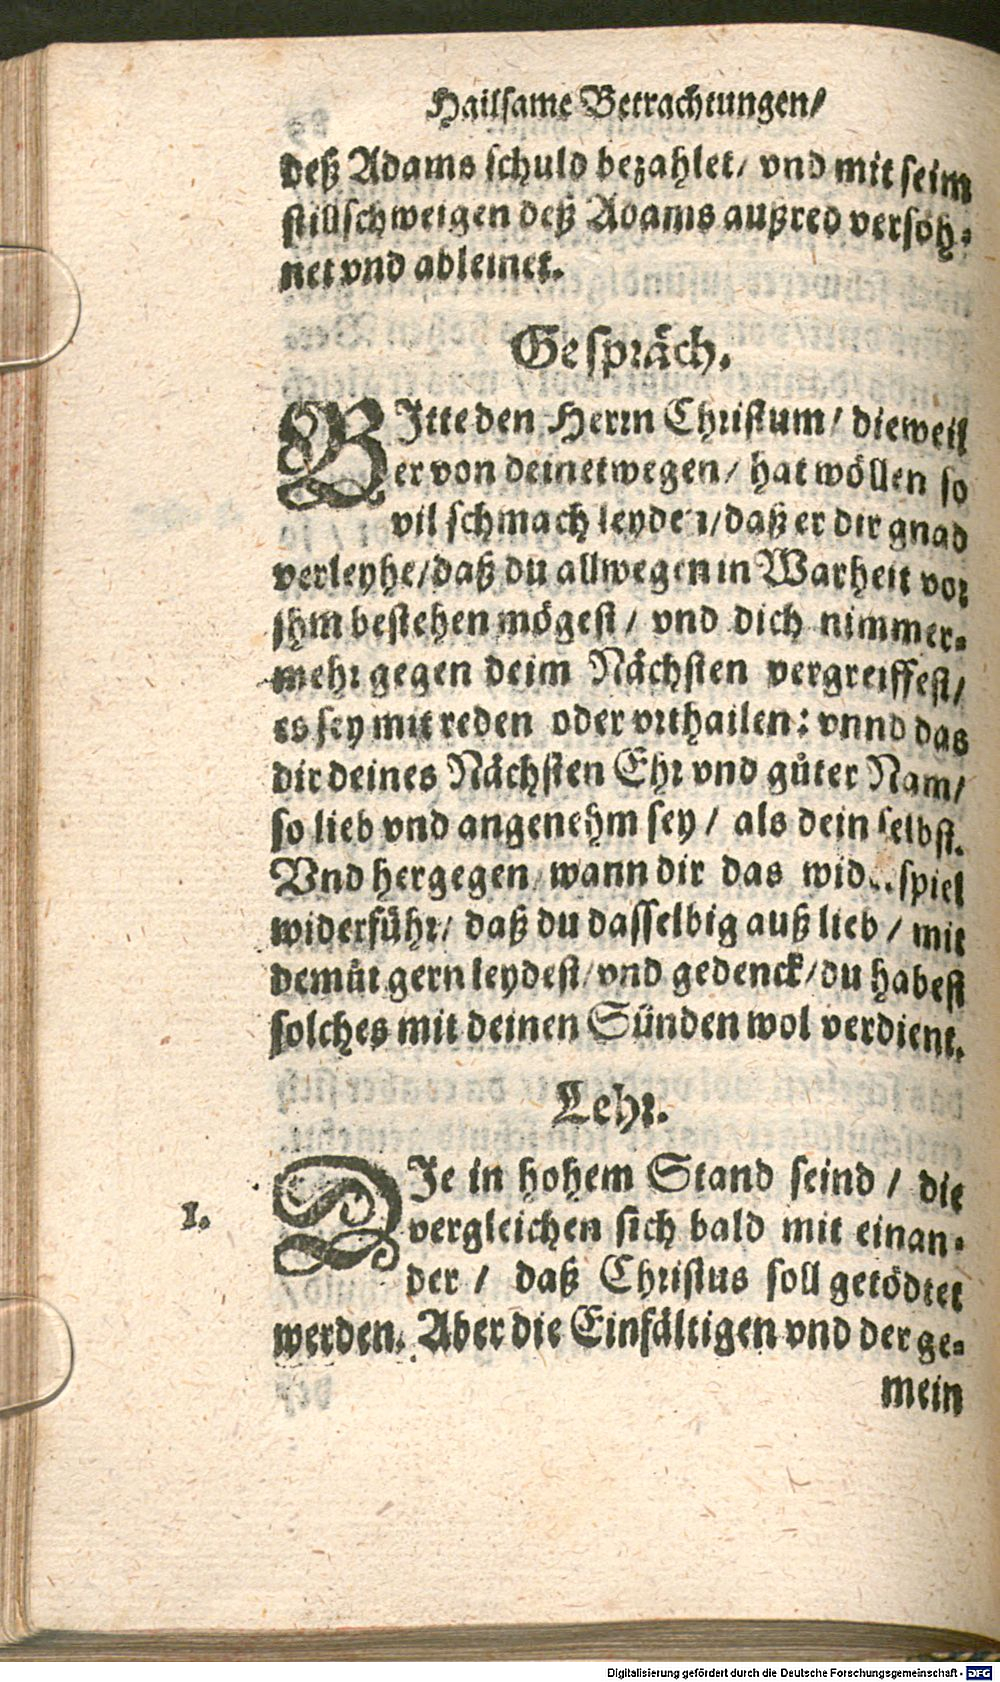 Hailsame Betrachtungen/
deß Adams schuld bezahlet/ vnd mit seim
stillschweigen deß Adams außred versöh-
net vnd ableinet.
Gespräch.
BItte den Herrn Christum/ dieweil
er von deinetwegen/ hat wöllen so
vil schmach leyden/daß er dir gnad
verleyhe/daß du allwegen in Warheit vor
jhm bestehen mögest/ vnd dich nimmer-
mehr gegen deim Nächsten vergreiffest/
es sey mit reden oder vrthailen: vnnd das
dir deines Nächsten Ehr vnd gůter Nam/
so lieb vnd angenehm sey/ als dein selbst.
Vnd hergegen wann dir das widerspiel
widerführ/ daß du dasselbig auß lieb/ mit
demüt gern leydest/vnd gedenck/du habest
solches mit deinen Sünden wol verdient.
Lehr.
1.
DIe in hohem Stand seind/ die
vergleichen sich bald mit einan-
der/ daß Christus soll getödtet
werden. Aber die Einfältigen vnd der ge-
mein
Digitalisierung gefördert durch die Deutsche Forschungsgemeinschaft - DFG